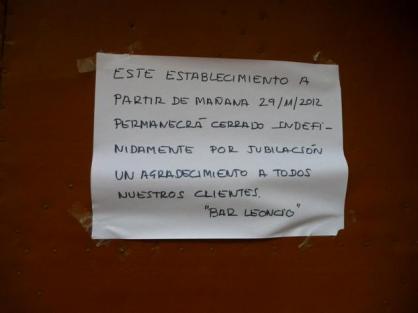 ESTE ESTABLECIMIENTO A
PARTIR DE MAÑANA 29/11/2012
PERMANECRÁ CERRADO INDEFI-
NIDAMENTE POR JUBILACIÓN
UN AGRADECIMIENTO A TODOS
NUESTROS CLIENTES.
"BAR LEONCIO"